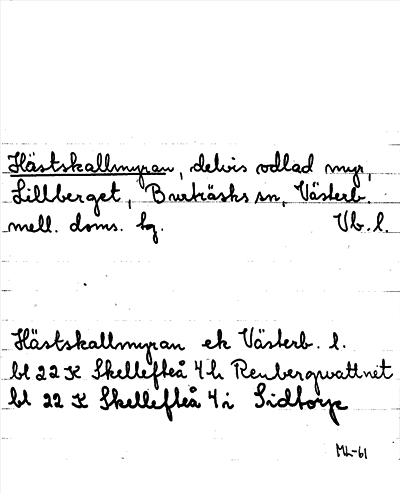 Hästskallmyran, delvis odlad myr,
Lillberget, Burträsks sn, Västerb.
mell. doms. hg. Vb. l.
Hästskallmyran ek Västerb. l.
bl 22 K Skellefteå 4 h Renbergsvattnet
bl 22 K Skellefteå 4 i Sidtorp
ML-61